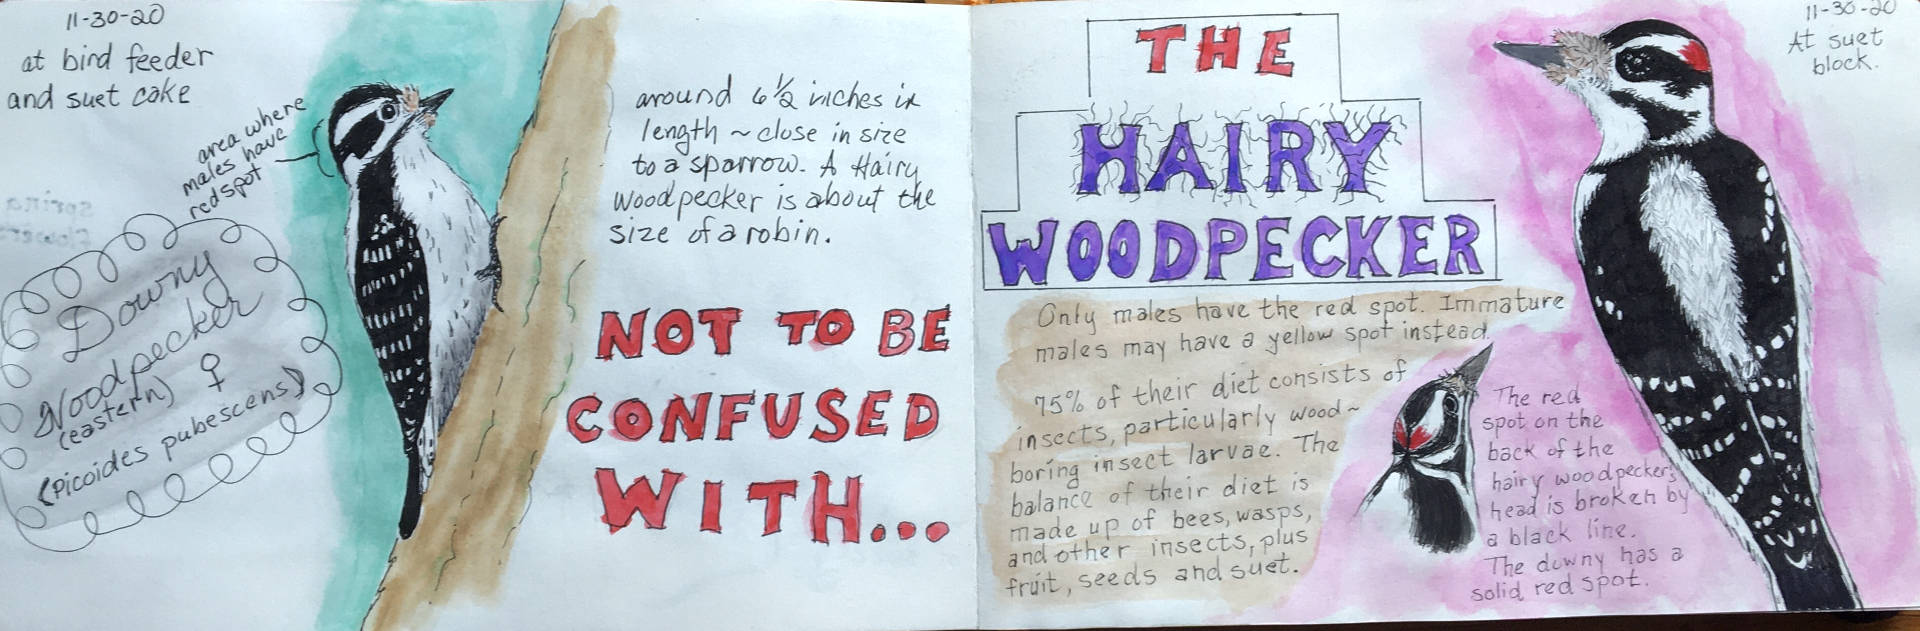 11-30-20
at bird feeder
and suet cake
area where
males have
red spot
Downy
Woodpecker
(eastern) ♀
(Picoides pubescens)
around 6 1/2 inches in
length ~ close in size
to a sparrow. A Hairy
Woodpecker is about the
size of a robin.
NOT TO BE
CONFUSED
WITH...
THE
HAIRY
WOODPECKER
11-30-20
At suet
block.
Only males have the red spot. Immature
males may have a yellow spot instead.
75% of their diet consists of
insects, particularly wood~
boring insect larvae. The
balance of their diet is
made up of bees, wasps,
and other insects, plus
fruit, seeds and suet.
The red
spot on the
back of the
hairy woodpecker's
head is broken by
a black line.
The downy has a
solid red spot.